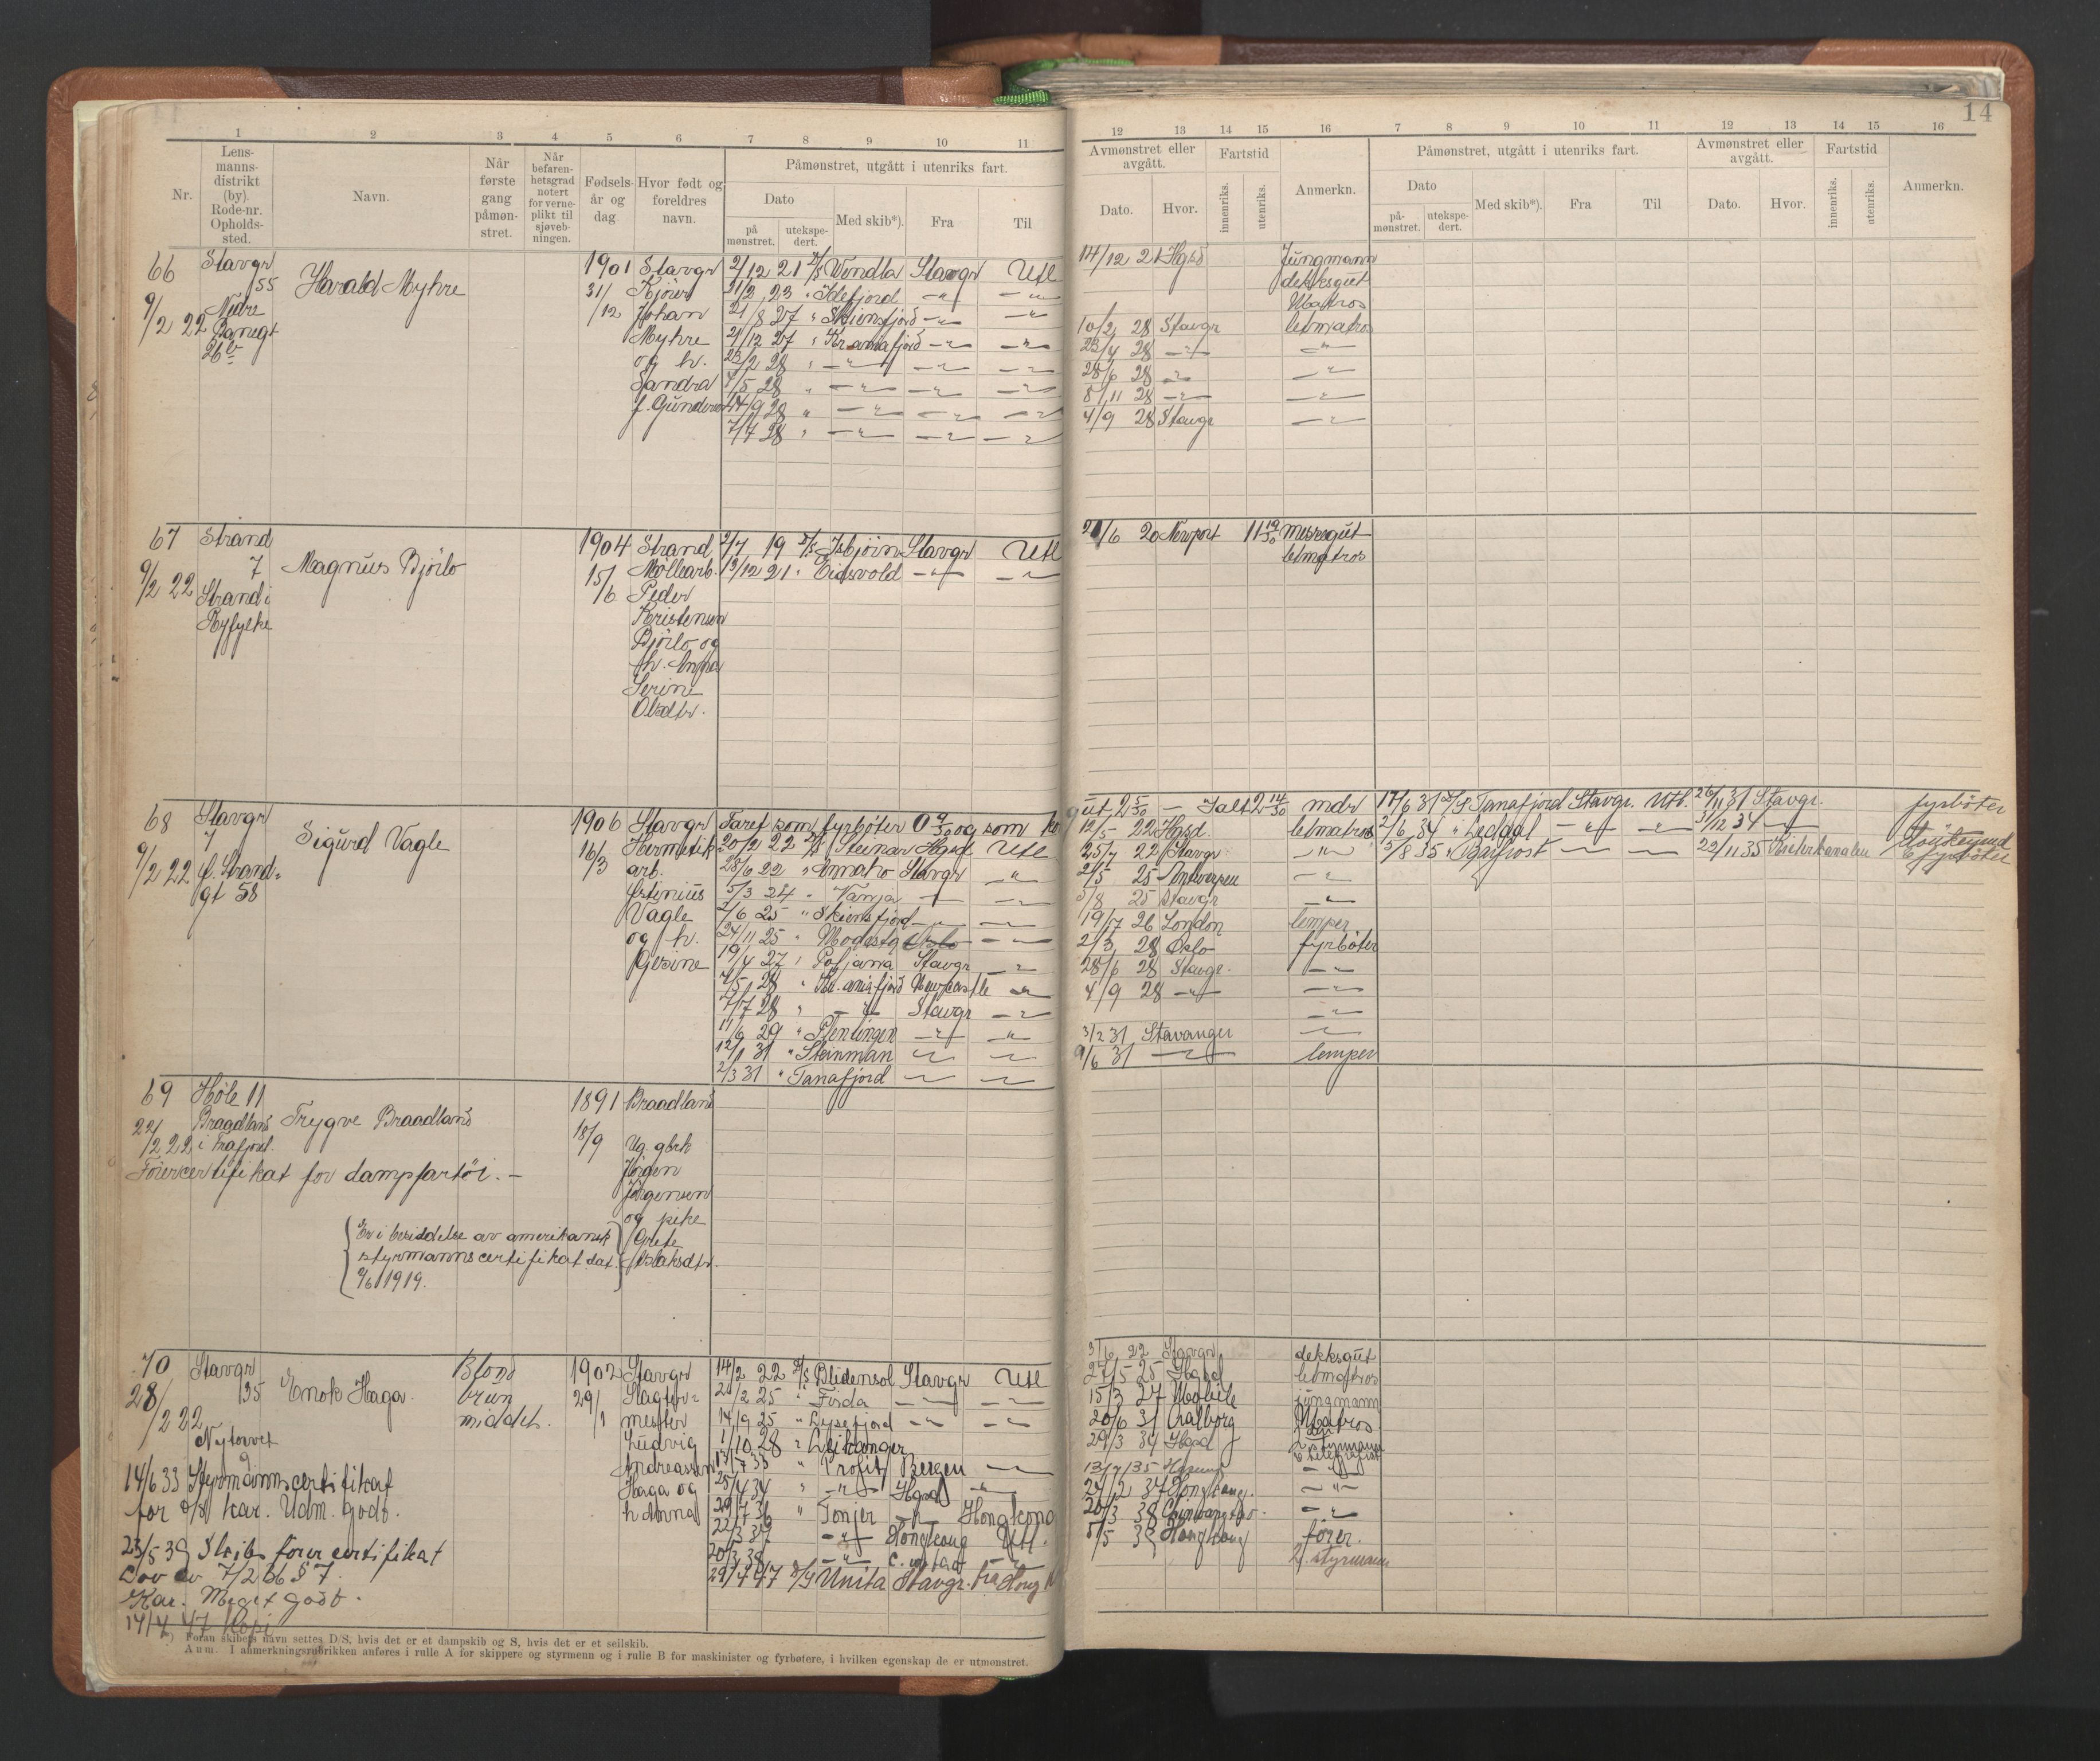 14
1 2 3 4 5 6 7 8 9 10 11
12 13 14 15 16 7 8 9 10 11 12 13 14 15 16
Nr.
Lens-
manns-
distrikt
(by).
Rode-nr.
Opholds-
sted.
Navn.
Når
første
gang
påmøn-
stret.
Når
befaren-
hetsgrad
notert
for verne-
plikt til
sjøveb-
ningen.
Fødsels-
år og
dag
Hvor født og
foreldres
navn.
Påmønstret, utgått i utenriks fart.
Dato
på
mønstret.
utekspe-
dert.
Med skib*).
Fra
Til
Avmønstret eller
avgått.
Dato.
Hvor.
Fartstid
innenriks.
utenriks.
Anmerkn.
Påmønstret, utgått i utenriks fart.
Dato
på-
mønstret.
utekspe-
dert.
Med skib*).
Fra
Til
Avmønstret eller
avgått.
Dato.
Hvor.
Fartstid
innenriks.
utenriks.
Anmerkn.
66
9/2 22
Stavgr
55
Nedre
Banegt
26b
Harald Myhre
1901
31/12
Stavgr
Kjører
Johan
Myhre
og h.
Sandra
f. Gunderso
2/12 21 D/S Wendla Stavgr Utl
21/2 23 " Idefjord -"- -"-
21/8 27 " Skiensfjord -"- -"-
21/12 27 " Kr.aniafjord -"- -"-
23/2 28 " -"- -"- -"-
4/5 28 " -"- -"- -"-
14/9 28 " -"- -"- -"-
7/7 28 " -"- -"- -"-
14/12 21 Hgsd Jungmann
dekksgut
Matros
10/2 28 Stavgr letmatros
23/4 28 -"- -"-
28/6 28 -"- -"-
8/11 28 -"- -"-
4/9 28 Stavgr -"-
67
9/2 22
Strand
7
Strand i
Ryfylke
Magnus Bjørlo
1904
15/6
Strand
Møllearb.
Peder
Kristensen
Bjørlo og
h. Anna
Serine
Olsdtr.
2/7 19 D/S Isbjørn Stavgr Utl
13/12 21 " Eidsvold -"- -"-
21/6 20 Newport 11 19/30 messegut
letmatros
68
9/2 22
Stavgr
7
ø. Strand-
gt 58
Sigurd Vagle
1906
16/3
Stavgr
Hermetik
arb.
Østenius
Vagle
og h.
Gesine
Faret som fyrbøter 0 9/30 og som ko
20/2 22 D/S Steinar Hgsd Utl
28/6 22 " Annatro Stavgr -"-
5/3 24 " Vanja -"- -"-
2/6 25 " Skiensfjord -"- -"-
24/11 25 " Modesta Oslo -"-
19/4 27 " Poljana Stavgr -"-
4/5 28 " Kr.aniafjord Newcastle -"-
7/7 28 " -"- Stavgr -"-
11/6 29 " Flentingen -"- -"-
12/1 31 " Steinman -"- -"-
2/3 31 " Tanafjord -"- -"-
gut 25 5/30 - Ialt 2 14/30 mdr
12/5 22 Hgsd. letmatros
25/7 22 Stavgr -"-
2/5 25 Antwerpen -"-
5/8 25 Stavgr -"-
19/7 26 London lemper
2/3 28 Oslo fyrbøter
28/6 28 Stavgr. -"-
4/9 28 -"- -"-
-"-
3/2 31 Stavanger -"-
9/6 31 -"- lemper
17/6 31 D/S Tanafjord Stavgr. Utl. 26/11 31 Stavgr. fyrbøter
2/6 34 " Ledaal -"- -"- 31/12 34 -"-
5/8 35 " Gasfrost -"- -"- 22/11 35 Kielerkanalen fyrbøter
69
22/2 22
Høle 11
Braadland
i Frafjord.
Trygve Braadland
1891
18/9
Braadland
Ug. gbrk
Jørgen
Jørgensen
og pike
Grete
Aslaksdtr.
Førercertifikat for dampfartøi. -
Er i besiddelse av amerikansk
styrmannscertifikat dat.
9/6 1919.
70
28/2 22
Stavgr
135
Nytorvet
9
Enok Haga
Blond
brun
middels.
1902
29/1
Stavgr
Slagter-
mester
Ludvig
Andreassen
Haga og
h. Anna
14/2 22 D/S Blidensol Stavgr Utl
21/2 25 " Fisda -"- -"-
14/9 25 " Lysefjord -"- -"-
1/10 28 " Leikanger
13/7 33 " Profit Bergen -"-
25/4 34 " -"- Hgsd -"-
29/7 36 " Tonjer -"- Hongkong
22/3 37 -"- Hongkong Utl.
20/3 38 -"- -"-
29/4 47 D/S Unita Stavgr. fra Hong
3/6 22 Stavgr dekksgut
27/5 25 Hgsd letmatros
15/3 27 Mobile jungmann
20/6 31 Aalborg Matros
29/3 34 Hgsd 2 styrmann
& telegrafist
13/7 35 Hgsund -"-
24/2 37 Hongkong. -"-
20/3 38 Chinwangtao. -"-
5/5 39 Hongkong fører.
2. styrmann
14/6 33 Styrmannscertifikat
for D/S kar. Udm. godt.
23/5 39 Skibsførercertifikat
Lov av 7/2 36 § 7.
Kar. Meget godt.
14/4 47 Kopi
*) Foran skibets navn settes D/S, hvis det er et dampskib og S, hvis det er et seilskib.
Anm. I anmerkningsrubrikken anføres i rulle A for skippere og styrmenn og i rulle B for maskinister og fyrbøtere, i hvilken egenskap de er utmønstret.